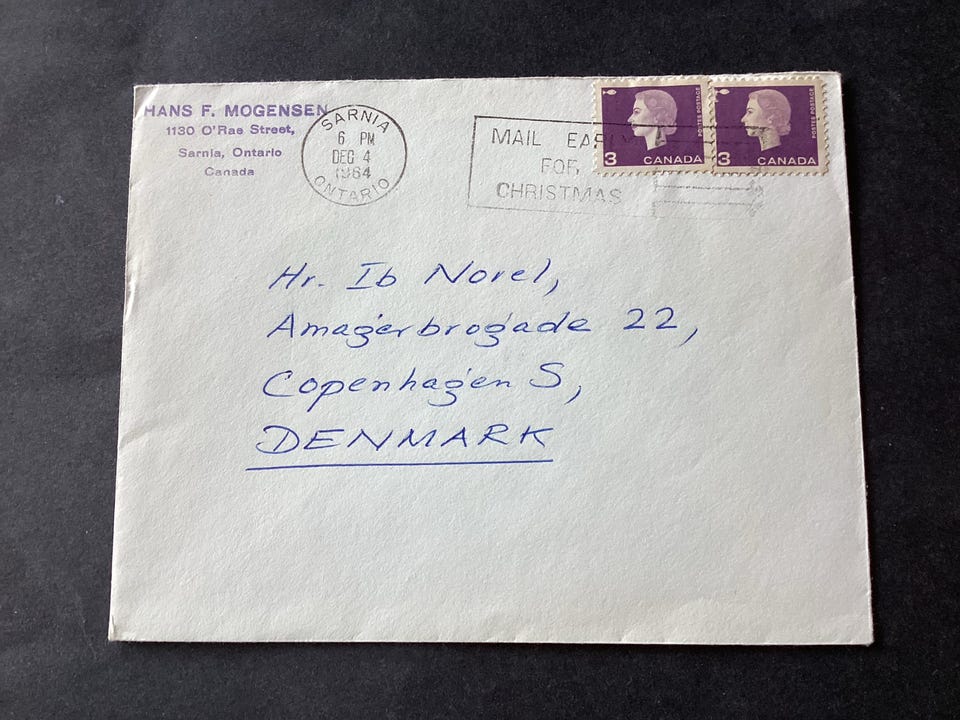 HANS F. MOGENSEN
1130 O'Rae Street,
Sarnia, Ontario
Canada
SARNIA
6 PM
DEC 4
1964
ONTARIO
MAIL EARLY
FOR
CHRISTMAS
3 CANADA
POSTES POSTAGE
3 CANADA
POSTES POSTAGE
Hr. Ib Norel,
Amagerbrogade 22,
Copenhagen S,
DENMARK